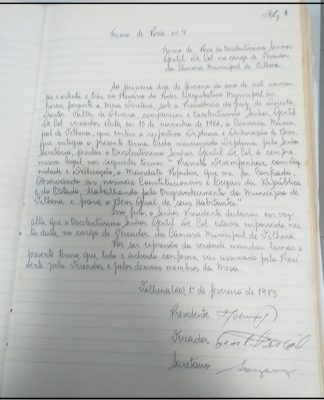 Termo de Posse nº 4
Termo de Posse do Excelentíssimo Senhor
Gentil De Col no cargo de Vereador
da Câmara Municipal de Vilhena.
Ao primeiro dia de fevereiro do ano de mil novecen
tos e oitenta e três, no Plenário do Poder Legislativo Municipal às
horas perante a Mesa Diretora, sob a Presidência do
compareceu o Excelentíssimo Senhor Gentil
De Col vereador eleito, em 15 de novembro de 1982, à Câmara Munici
pal de Vilhena, que exibiu o respectivo Diploma e Declaração de Bens
que integra o presente Termo. Sendo mencionado Diploma, pelo Senhor
Secretário, Excelentíssimo Senhor Gentil De Col o compro
misso legal nos seguintes termos: " Prometo Desempenhar com Dig
nidade e Dedicação, o Mandato Popular que me foi Confiado,
Observando as normas Constitucionais e Legais da República
e do Estado, trabalhando pelo Engrandecimento do Município de
Vilhena e para o Bem Geral de seus Habitantes."
Isso feito, o Senhor Presidente declarou em voz
alta que o Excelentíssimo Senhor Gentil De Col estava empossado nes
ta data, no cargo de Vereador da Câmara Municipal de Vilhena.
Por ser expressão da verdade mandou lavrar o
presente termo, que lido e achado conforme, vai assinado pelo Presi
dente pelo Vereador e pelos demais membros da Mesa.
Vilhena (RO), 1º de fevereiro de 1983
Presidente
Vereador
Secretário